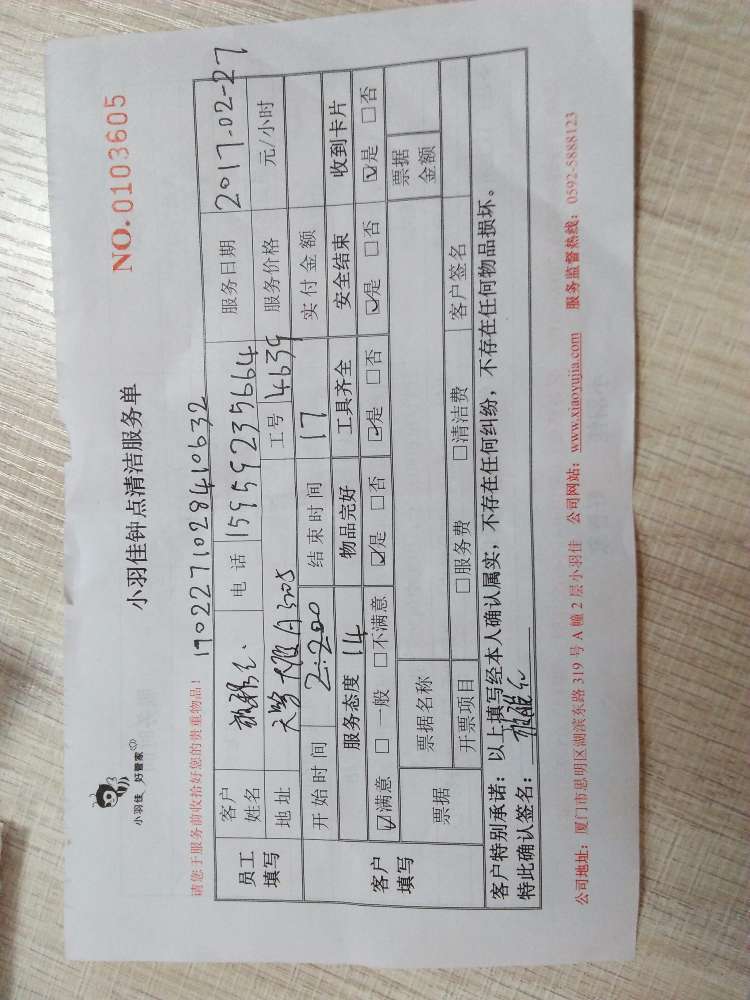 小羽佳 好管家
小羽佳钟点清洁服务单
NO.0103605
请您于服务前收拾好您的贵重物品!
1902271028410632
员工填写 客户姓名 电话 15959235664 服务日期 2017-02-27
地址 工号 4639 服务价格 元/小时
开始时间 结束时间 17 实付金额
客户填写 服务态度 14 物品完好 工具齐全 安全结束 收到卡片
☑满意 □一般 □不满意 ☑是 □否 ☑是 □否 ☑是 □否 ☑是 □否
票据 票据名称 票据金额
开票项目 □服务费 □清洁费 客户签名
客户特别承诺:以上填写经本人确认属实,不存在任何纠纷,不存在任何物品损坏。
特此确认签名:
公司地址:厦门市思明区湖滨东路 319 号 A 幢 2 层小羽佳 公司网站:www.xiaoyujia.com 服务监督热线:0592-5888123